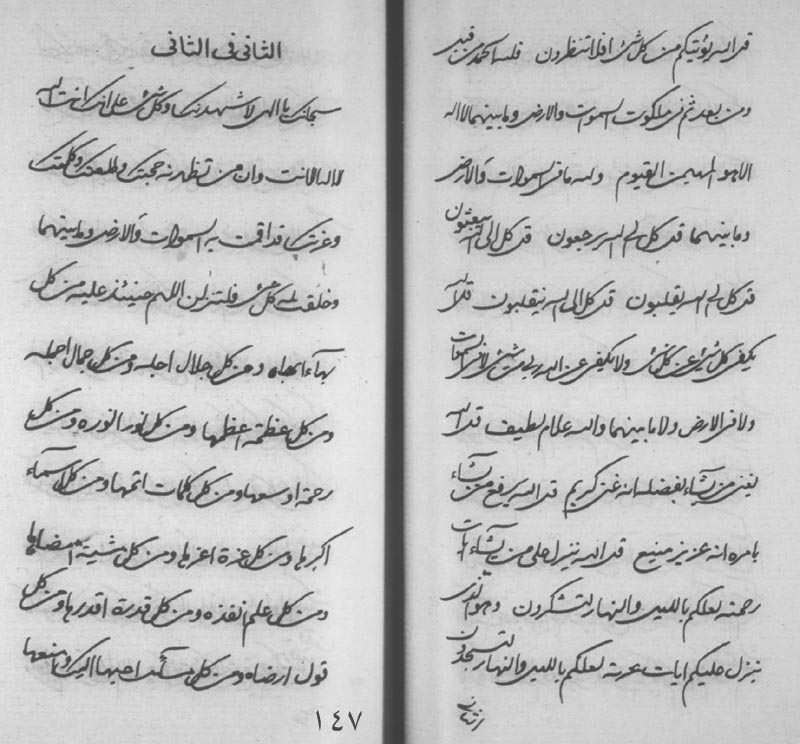 قل الله يؤتيكم من كل شئ افلا تنظرون قل لله الحمد من قبل
ومن بعد ثم فى ملكوت السموات والارض وما بينهما لا اله
الا هو المهيمن القيوم ولله ما فى السموات والارض
وما بينهما قل كل له الى الله يرجعون قل كل الى الله يبعثون
قل كل الى الله يقلبون قل كل الى الله ينقلبون قل الله
يكفى كل شئ عن كل شئ ولا يكفى عن الله ربى من شئ لا فى السموات
ولا فى الارض ولا ما بينهما والله علام لطيف قل الله
يغنى من يشاء بفضله انه غنى كريم قل الله يرفع من يشاء
بامره انه عزيز منيع قل الله ينزل على من يشاء آيات
رحمته لعلكم بالليل والنهار لتشكرون وهو الذى
ينزل عليكم ايات عربية لعلكم بالليل والنهار لتسجدون
الثانى
الثانى فى الثانى
سبحانك يا الهى لاشهدنك وكل شئ على انك انت الله
لا اله الا انت وان من تظهرنه حجتك وطلعتك وكلمتك
وعزتك قد اقمت به السموات والارض وما بينهما
وخلقت له كل شئ فلتنزلن اللهم حينئذ عليه من كل
بهاء ابهاه ومن كل جلال اجله ومن كل جمال اجمله
ومن كل عظمة اعظمها ومن كل نور انوره ومن كل
رحمة اوسعها ومن كل كلمات اتمها ومن كل اسماء
اكبرها ومن كل عزة اعزها ومن كل مشية امضاها
ومن كل علم انفذه ومن كل قدرة اقدرها ومن كل
قول ارضاه ومن كل مسائل احبها اليك وامنعها
١٤٧